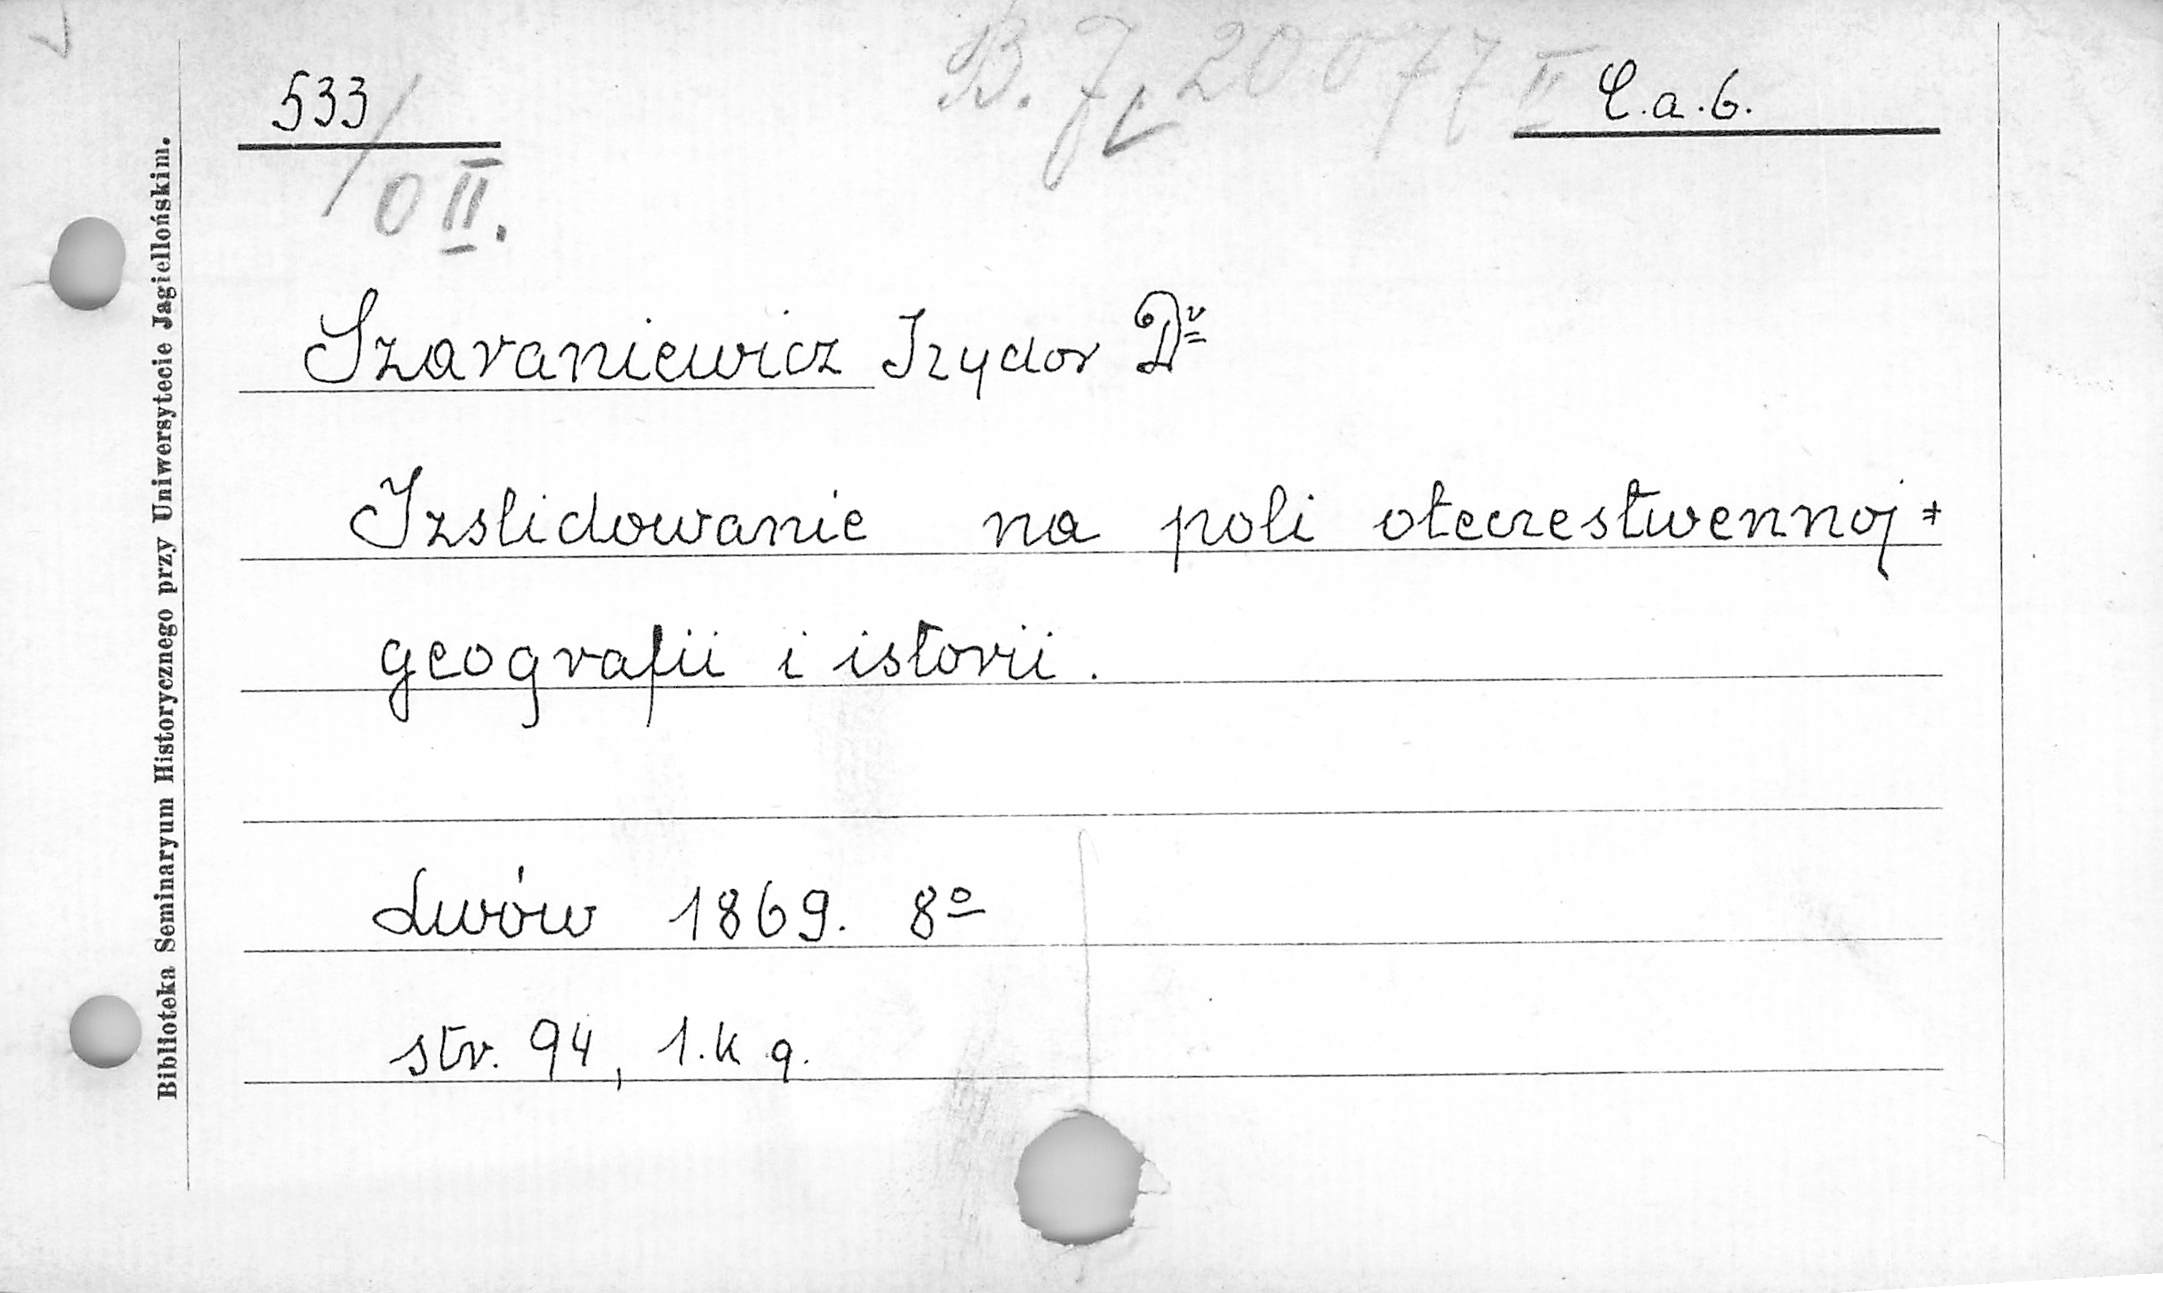 B. J. 20077 II
533 C.a.6.
/ 0 II.
Szaraniewicz Izydor Dr
Izslidowanie na poli oteczestwennoj
geografii i istorii.
Lwów 1869. 8o
str. 94, 1. k g.
Biblioteka Seminaryum Historycznego przy Uniwersytecie Jagiellońskim.